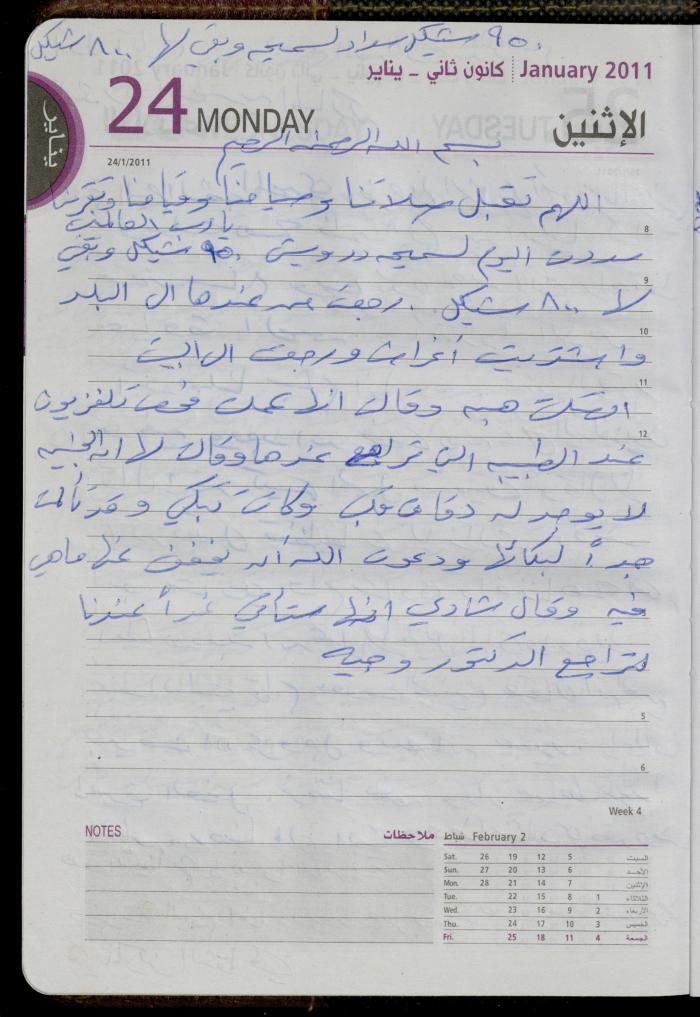 ٩٥٠ شيكل سداد لسميحه وبقي لها ٨٠٠ شيكل
January 2011 كانون ثاني - يناير
24 MONDAY الإثنين
يناير
24/1/2011
بسم الله الرحمن الرحيم
اللهم تقبل صلاتنا وصيامنا وقيامنا وتقربنا
يا رب العالمين
8
سددت اليوم لسميحه درويش ٩٥٠ شيكل وبقي
9
لها ٨٠٠ شيكل. رجعت من عندها الى البلد
10
واشتريت أغراض ورجعت الى البيت
11
اتصلت هبه وقالت انها عملت فحص تلفزيون
12
عند الطبيبه التي تراجع عندها وقالت لها ان الجنين
لا يوجد له دقات قلب وكانت تبكي وقد تألمت
جداً لبكائها ودعوت الله أن يخفف عنها ما هي
فيه وقال شادي انها ستأتي غداً عندنا
لتراجع الدكتور وجيه
5
6
Week 4
NOTES ملاحظات
February 2 شباط
Sat. 26 19 12 5 السبت
Sun. 27 20 13 6 الأحد
Mon. 28 21 14 7 الإثنين
Tue. 22 15 8 1 الثلاثاء
Wed. 23 16 9 2 الأربعاء
Thu. 24 17 10 3 الخميس
Fri. 25 18 11 4 الجمعة